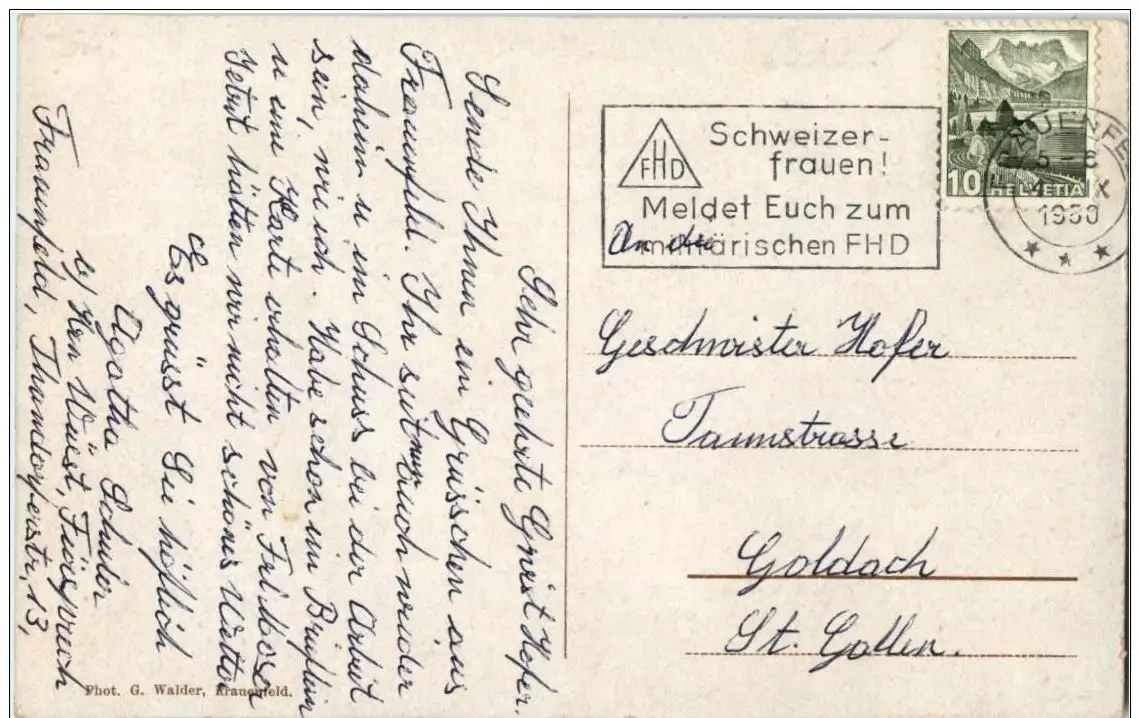 Sehr geehrte Gneist Hofer.
Sende Ihnen ein Grüsschen aus
Frauenfeld. Ihr seit nur auch wieder
daheim u im Schuss bei der Arbeit
sein, wie ich. Habe schon ein Brieflein
u eine Karte erhalten von Frl. Moser
Jetzt hätten wir nicht schönes Wetter
Es grüsst Sie höflich
Agatha Schuler
b/ Herr Wüest, Fürsprech
Frauenfeld, Thundorferstr. 13,
Phot. G. Walder, Frauenfeld.
FHD
Schweizer-
frauen!
Meldet Euch zum
militärischen FHD
HELVETIA
10
FRAUENFELD
5-6
IX
An die
Geschwister Hofer
Tannstrasse
Goldach
St. Gallen.